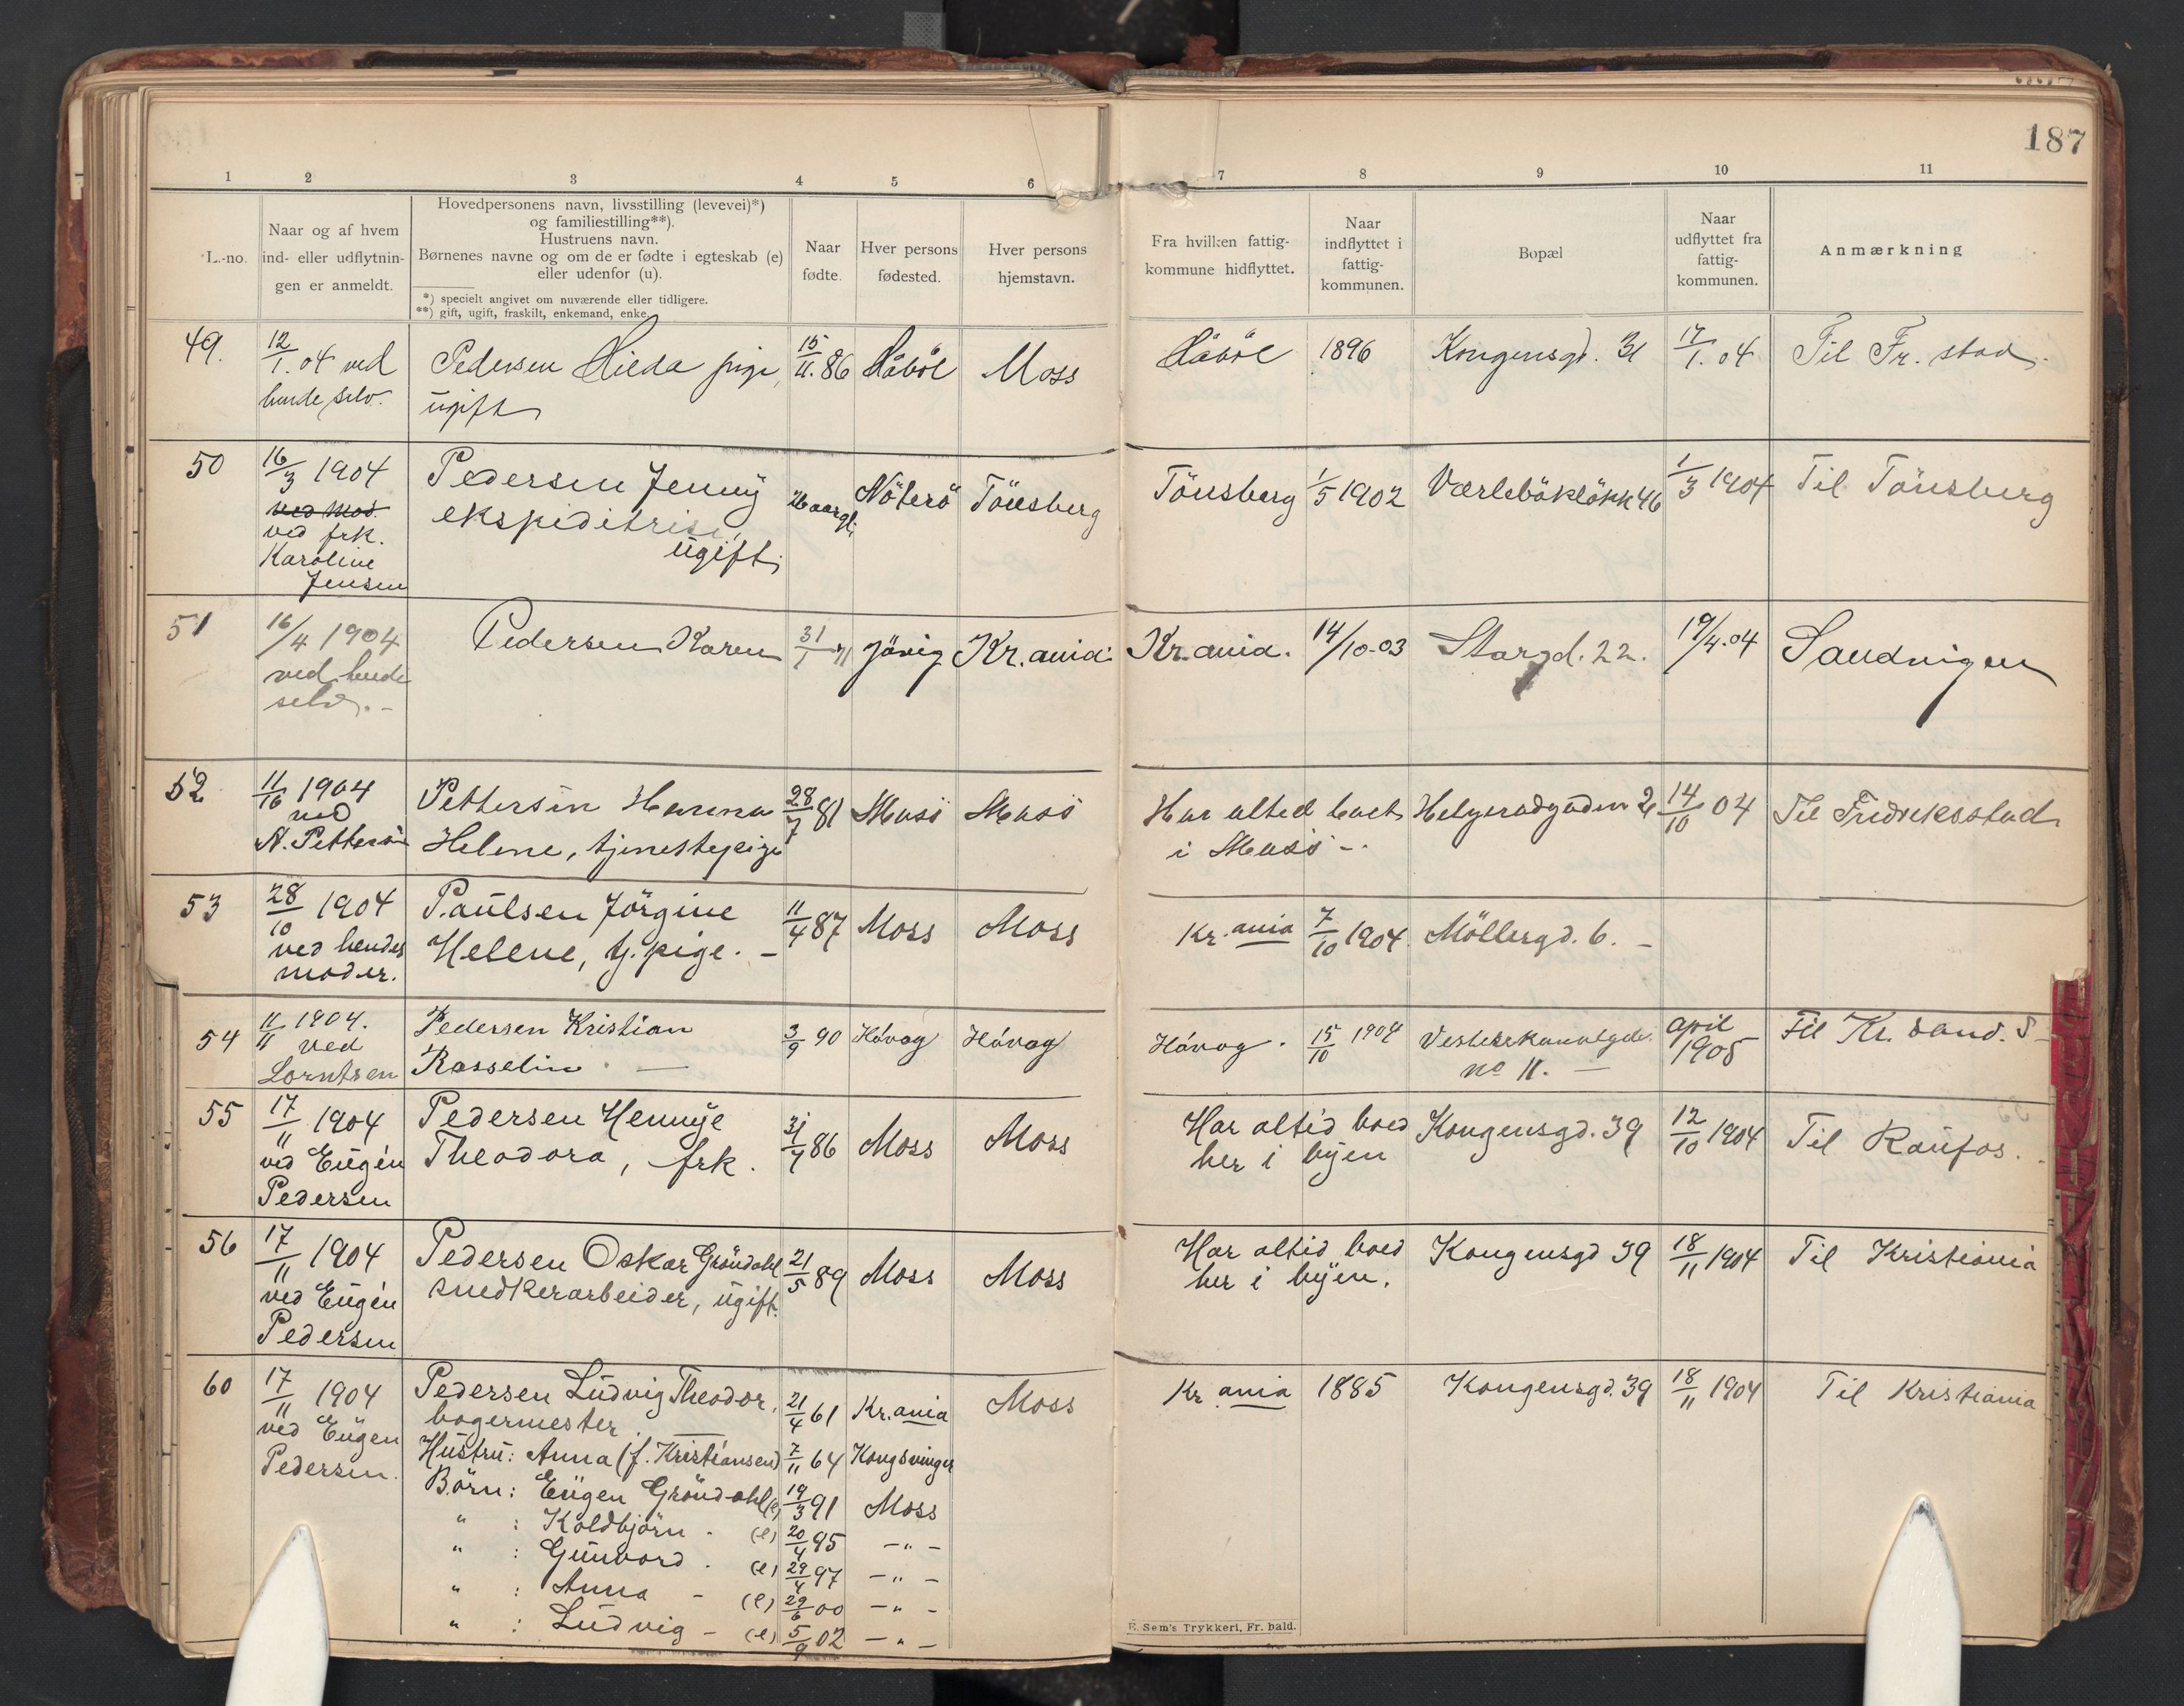 187
1 2 3 4 5 6 7 8 9 10 11
L.-no.
Naar og af hvem
ind- eller udflytnin-
gen er anmeldt.
Hovedpersonens navn, livsstilling (levevei)*)
og familiestilling**).
Hustruens navn.
Børnenes navne og om de er fødte i egteskab (e)
eller udenfor (u).
*) specielt angivet om nuværende eller tidligere.
**) gift, ugift, fraskilt, enkemand, enke.
Naar
fødte.
Hver persons
fødested.
Hver persons
hjemstavn.
Fra hvilken fattig-
kommune hidflyttet.
Naar
indflyttet i
fattig-
kommunen.
Bopæl
Naar
udflyttet fra
fattig-
kommunen.
Anmærkning
49. 12/1. 04 ved Pedersen Hilda pige, 15/11. 86 Håböl Moss Håböl 1896 Kongensgd. 31 17/1. 04 Til Fr. stad.
hende selv. ugift
50 16/3 1904 Pedersen Jenny 26 aargl. Nöterö Tönsberg Tönsberg 1/5 1902 Værlebökløkk 46 1/3 1904 Til Tönsberg
ved Mos.
ved frk. ekspeditrise,
Karoline ugift.
Jensen
51 16/4 1904 Pedersen Karen 31/1 71 Gjövig Kr.ania. Kr.ania. 14/10-03 Storgd. 22. 19/4.04 Sandvigen
ved hende
selv.-
52 11/10 1904 Pettersen Hanna 28/7 81 Moss Moss Har altid boet Helgerødgaden 2 14/10 04 Til Fredriksstad
ved
N. Pettersen Helene, tjenestepige i Moss -.
53 28/10 1904 Paulsen Jörgine 11/4 87 Moss Moss Kr.ania 7/10 1904. Möllergd. 6. -
ved hendes Helene, tj. pige. -
moder.
54 11/11 1904. Pedersen Kristian 3/9 90 Hövag Hövag Hövag. 15/10 1904 april Til Kr. sand. S
ved
Lorntsen no 11. - 1905
55 17/11 1904 Pedersen Hennye 31/7 86 Moss Moss Har altid boed Kongensgd. 39 12/10 1904 Til Raufos.
ved Eugén Theodora, frk. her i byen
Pedersen
56 17/11 1904 Pedersen Oskar Gröndahl 21/5 89 Moss Moss Har altid boed Kongensgd 39 18/11 1904 Til Kristiania
ved Eugén snedkerarbeider, ugift. her i byen.
Pedersen
60 17/11 1904 Pedersen Ludvig Theodor, 21/4 61 Kr.ania Moss Kr.ania 1885 Kongensgd. 39 18/11 1904 Til Kristiania
ved Eugen bagermester.
Pedersen. Hustru: Anna (f. Kristiansen) 7/11 64 Kongsvinger
Börn: Eugen Gröndahl (e) 19/3 91 Moss
" : Koldbjörn - (e) 20/4 95 -"-
" : Gunvord. (e) 29/4 97 -"-
" : Anna - (e) 29/6 00 -"-
" : Ludvig - (e) 5/9 02 -"-
E. Sem's Trykkeri, Fr. hald.